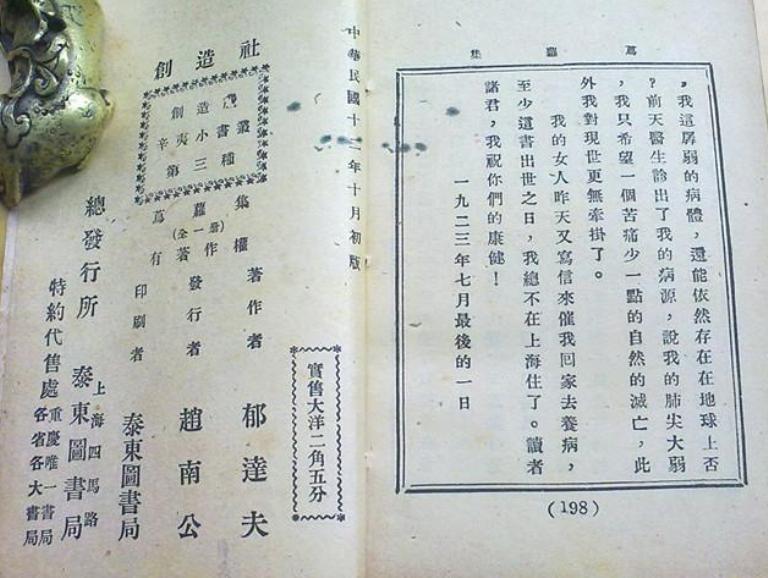 蔦蘿集
，我這孱弱的病體，還能依然存在在地球上否
？前天醫生診出了我的病源，說我的肺尖大弱
，我只希望一個苦痛少一點的自然的滅亡，此
外我對現世更無牽掛了。
我的女人昨天又寫信來催我回家去養病，
至少這書出世之日，我總不在上海住了。讀者
諸君，我祝你們的康健！
一九二三年七月最後的一日
(198)
中華民國十二年十月初版
實售大洋二角五分
創造社
辛夷小叢書
第三種
蔦蘿集
(全一册)
有著作權
著作者 郁達夫
發行者 趙南公
印刷者 泰東圖書局
總發行所 上海四馬路 泰東圖書局
特約代售處 重慶唯一書局 各省各大書局